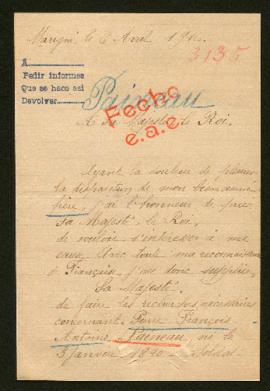 Marigné le 2 Avril 191
3135
A
Pedir informes
Que se haco asi
Devolver
Paineau
Fecho
e.a.e.
A Sa Majesté le Roi.
Ayant la douleur de pleurer
la disparition de mon bien aimé
frère, j'ai l'honneur de prier
Sa Majesté le Roi
de vouloir s'intéresser à ma
cause. Avec toute ma reconnaissance
de Française, j'ose donc supplier
Sa Majesté
de faire les recherches nécessaires
concernant Pierre François
Antoine Paineau, né le
3 janvier 1890. Soldat